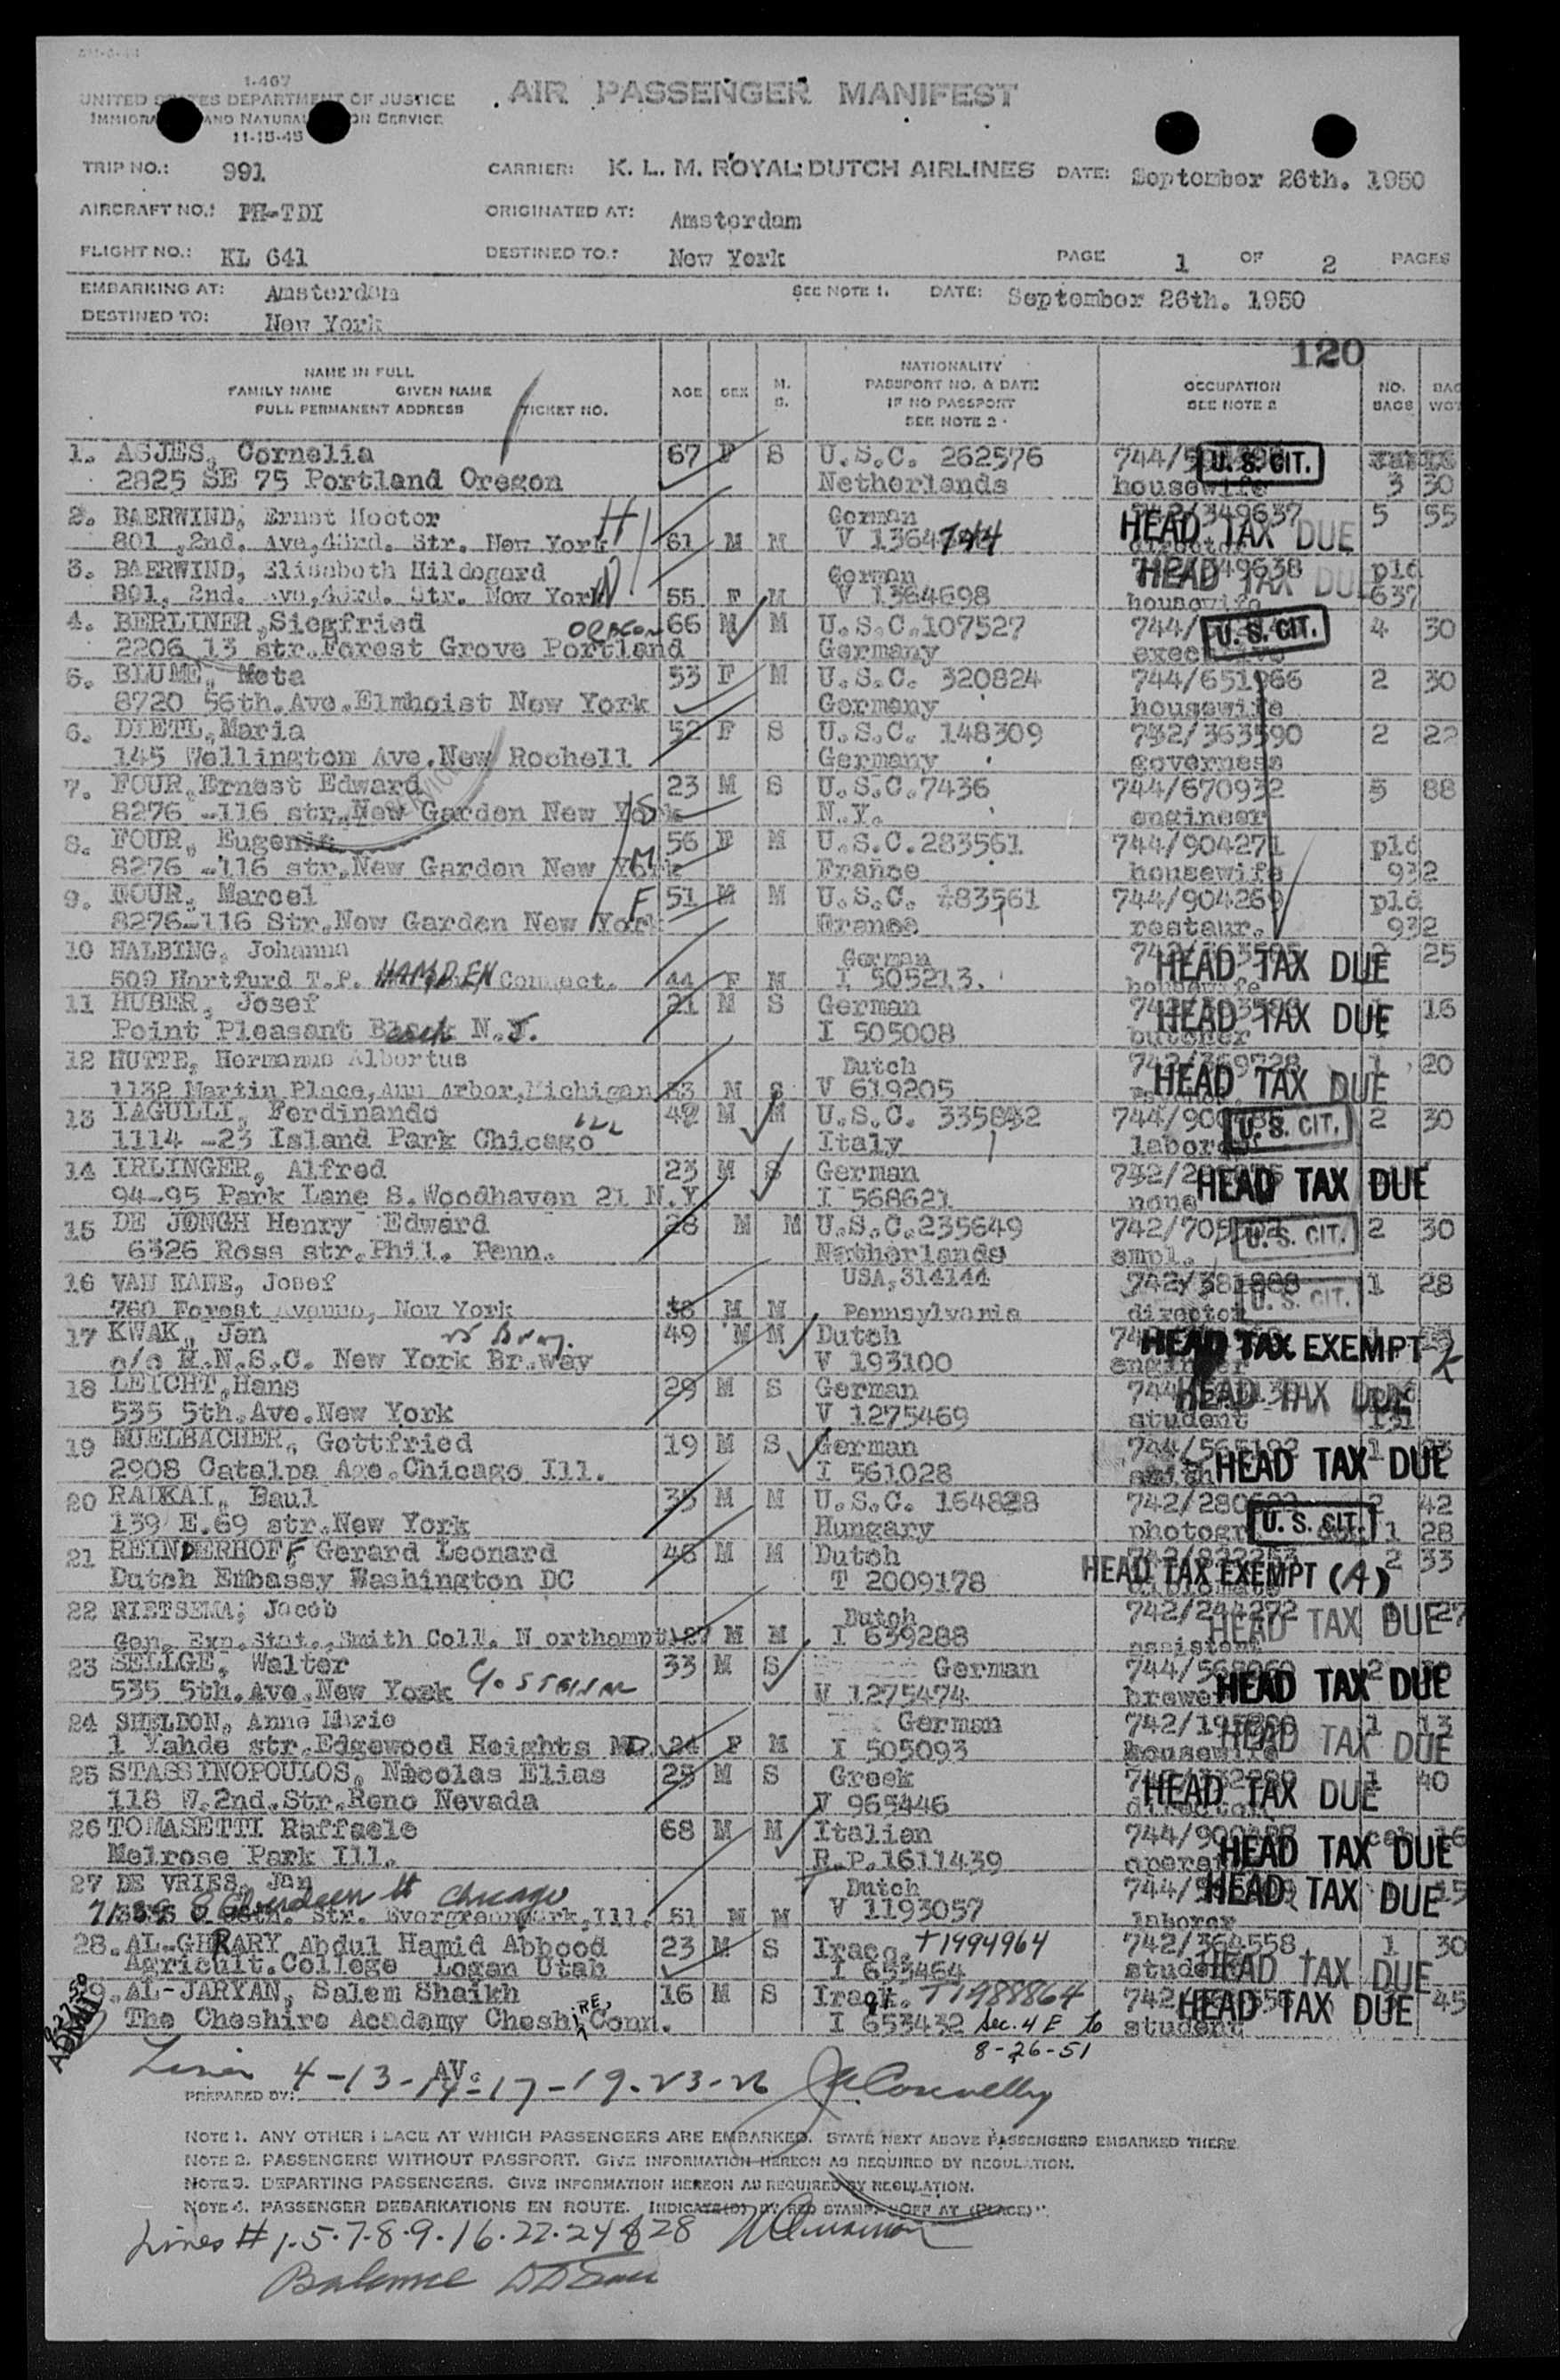 1-467
UNITED STATES DEPARTMENT OF JUSTICE
IMMIGRATION AND NATURALIZATION SERVICE
11-15-45
AIR PASSENGER MANIFEST
TRIP NO.: 991 CARRIER: K. L. M. ROYAL DUTCH AIRLINES DATE: September 26th. 1950
AIRCRAFT NO.: PH-TDI ORIGINATED AT: Amsterdam
FLIGHT NO.: KL 641 DESTINED TO.: New York PAGE 1 OF 2 PAGES
EMBARKING AT: Amsterdam SEE NOTE 1. DATE: September 26th. 1950
DESTINED TO: New York
120
NAME IN FULL
FAMILY NAME GIVEN NAME
FULL PERMANENT ADDRESS TICKET NO. AGE SEX M. S. NATIONALITY PASSPORT NO. & DATE IF NO PASSPORT SEE NOTE 2 OCCUPATION SEE NOTE 2 NO. BAGS BAG WGT
1. ASJES, Cornelia 67 F S U.S.C. 262576 U. S. CIT.
2825 SE 75 Portland Oregon Netherlands housewife 3 30
2. BAERWIND, Ernst Hector H German 742/349637 5 55
801 ,2nd. Ave,43rd. Str. New York 61 M M V 1364744 director HEAD TAX DUE
3. BAERWIND, Elisabeth Hildegard W German 742/349638 pld
801, 2nd. Ave,43rd. Str. New York 55 F M V 1364698 housewife HEAD TAX DUE 637
4. BERLINER,Siegfried OREGON 66 M M U.S.C.107527 744/ U. S. CIT. 4 30
2206 13 str.Forest Grove Portland Germany executive
5. BLUME, Meta 53 F M U.S.C. 320824 744/651966 2 30
8720 56th.Ave.Elmhoist New York Germany housewife
6. DIETL,Maria 52 F S U.S.C. 148309 742/363590 2 22
145 Wellington Ave.New Rochell Germany governess
7. FOUR,Ernest Edward 23 M S U.S.C.7436 744/670932 5 88
8276 -116 str.New Garden New York S N.Y. engineer
8. FOUR, Eugenia 56 F M U.S.C.283561 744/904271 pld
8276 -116 str.New Garden New York M France housewife 932
9. FOUR, Marcel F 51 M M U.S.C. 483561 744/904269 pld
8276-116 Str.New Garden New York France restaur. 932
10 HALBING, Johanna German HEAD TAX DUE 2 25
509 Hartfurd T.P. HAMDEN Connect. 44 F M I 505213. housewife
11 HUBER, Josef 21 M S German HEAD TAX DUE 1 16
Point Pleasant Beach N.J. I 505008 butcher
12 HUTTE, Hermanus Albertus Dutch 742/369728 1 20
1132 Martin Place,Ann Arbor,Michigan 33 M S V 619205 HEAD TAX DUE
13 IAGULLI, Ferdinando ILL 42 M M U.S.C. 335842 U. S. CIT. 2 30
1114 -23 Island Park Chicago Italy laborer
14 IRLINGER, Alfred 23 M S German HEAD TAX DUE
94-95 Park Lane S.Woodhaven 21 N.Y. I 568621 none
15 DE JONGH Henry Edward 28 M M U.S.C.235649 742/705 U. S. CIT. 2 30
6326 Ross str.Phil. Penn. Netherlands empl.
16 VAN KANE, Josef USA,314144 742/381888 1 28
760 Forest Avenue, New York 38 M M Pennsylvania director U. S. CIT.
17 KWAK, Jan 49 M M Dutch HEAD TAX EXEMPT
c/o H.N.S.C. New York Br.way V 193100 engineer
18 LEICHT,Hans 29 M S German HEAD TAX DUE pld
535 5th.Ave.New York V 1275469 student 131
19 MUELBACHER, Gottfried 19 M S German HEAD TAX DUE
2908 Catalpa Age.Chicago Ill. I 561028 smith
20 RAIKAI, Paul 35 M M U.S.C. 164828 742/280 2 42
139 E.69 str.New York Hungary photogr. U. S. CIT. 1 28
21 REINDERHOFF Gerard Leonard 48 M M Dutch 2 33
Dutch Embassy Washington DC T 2009178 HEAD TAX EXEMPT (A)
22 RIETSEMA, Jacob Dutch 742/244272 27
Gen. Exp.Stat.,Smith Coll. N orthampt. 27 M M I 639288 assistent HEAD TAX DUE
23 SELLGE, Walter 33 M S German HEAD TAX DUE 2
535 5th.Ave.New York V 1275474 brewer
24 SHELDON, Anne Marie German 1 13
1 Yahde str.Edgewood Heights MD 24 F M I 505093 housewife HEAD TAX DUE
25 STASSINOPOULOS, Nicolas Elias 25 M S Greek HEAD TAX DUE 1 40
118 W.2nd.Str.Reno Nevada V 965446 director
26 TOMASETTI Raffaele 68 M M Italian 744/900 16
Melrose Park Ill. R.P.1611439 HEAD TAX DUE
27 DE VRIES, Jan Dutch HEAD TAX DUE 15
Aberdeen St Chicago Str. Evergreenpark,Ill. 51 M M V 1193057 laborer
28. AL-GHRARY Abdul Hamid Abbood 23 M S Iracq. T1994964 742/364558 1 30
Agricult.College Logan Utah I 653464 student HEAD TAX DUE
29. AL-JARYAN, Salem Shaikh 16 M S Irack. T1988864 HEAD TAX DUE 45
The Cheshire Academy Cheshire, Conn. I 653432 Sec. 4 E to student
8-26-51
Lines 4-13-14-17-19-23-26
PREPARED BY: AV. J A Connelly
NOTE 1. ANY OTHER PLACE AT WHICH PASSENGERS ARE EMBARKED. STATE NEXT ABOVE PASSENGERS EMBARKED THERE.
NOTE 2. PASSENGERS WITHOUT PASSPORT. GIVE INFORMATION HEREON AS REQUIRED BY REGULATION.
NOTE 3. DEPARTING PASSENGERS. GIVE INFORMATION HEREON AS REQUIRED BY REGULATION.
NOTE 4. PASSENGER DEBARKATIONS EN ROUTE. INDICATE(D) BY RED STAMP. "OFF AT (PLACE)".
Lines # 1-5-7-8-9-16-22-24 & 28
Balance